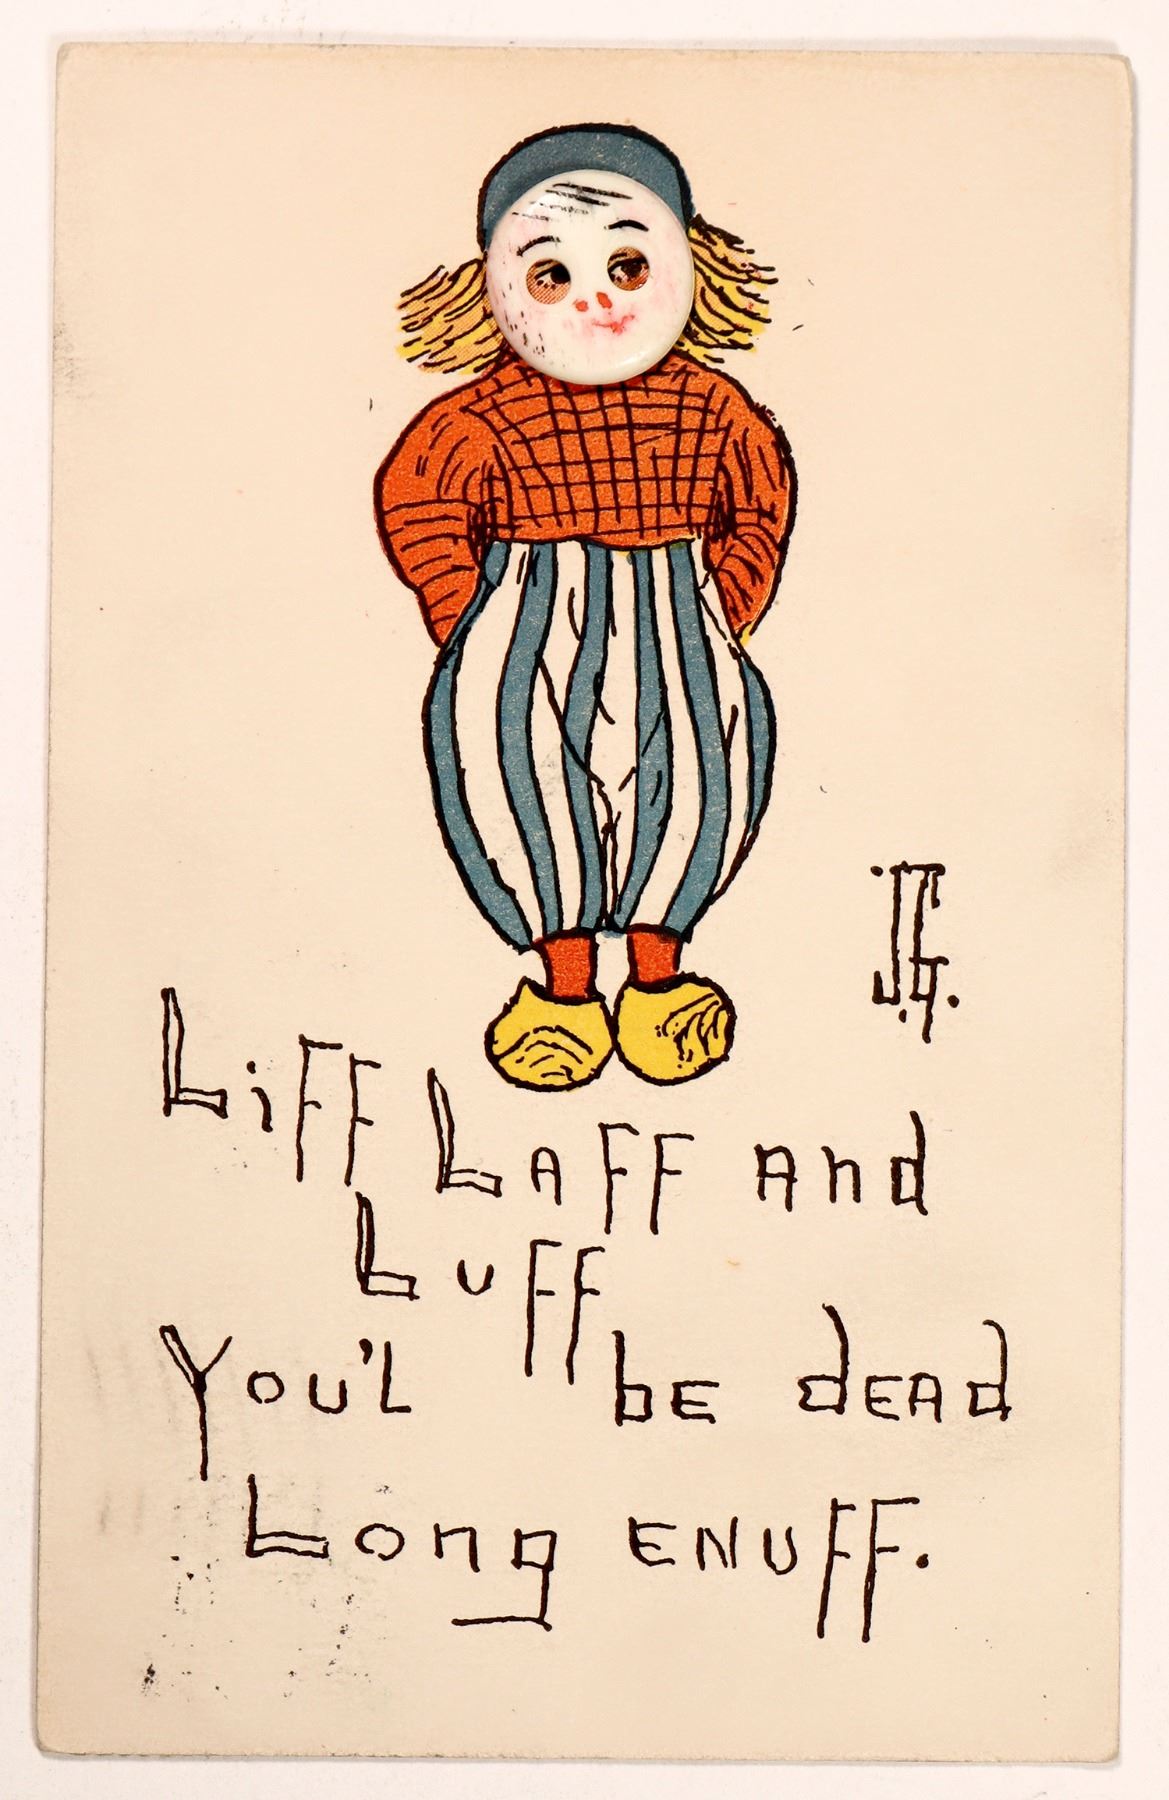 J.G.
LiFF LAFF And
LuFF
You'l be dEAd
Long ENUFF.